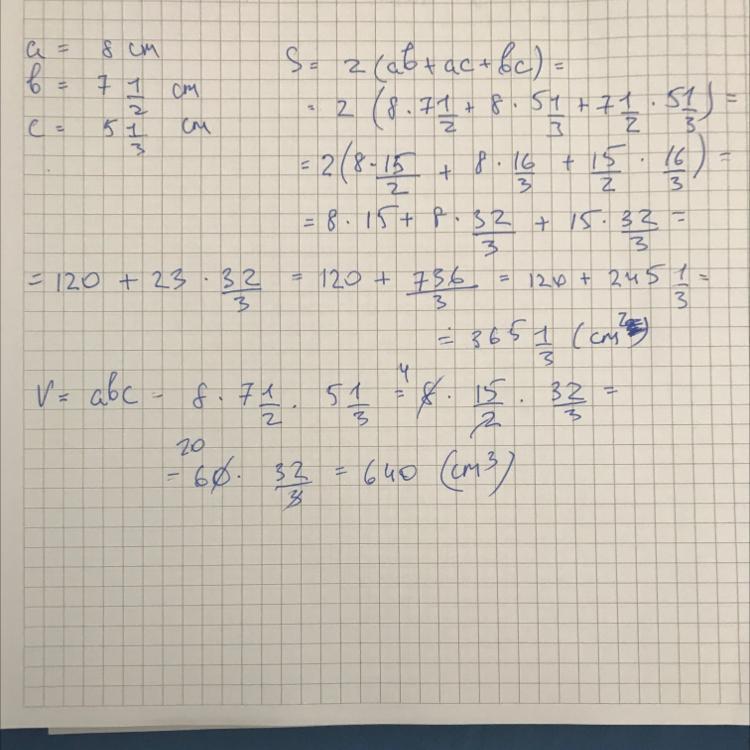 a = 8 cm
b = 7 1/2 cm
c = 5 1/3 cm
S = 2 (ab + ac + bc) =
= 2 (8 · 7 1/2 + 8 · 5 1/3 + 7 1/2 · 5 1/3) =
= 2 (8 · 15/2 + 8 · 16/3 + 15/2 · 16/3) =
= 8 · 15 + 8 · 32/3 + 15 · 32/3 =
= 120 + 23 · 32/3 = 120 + 736/3 = 120 + 245 1/3 =
= 365 1/3 (cm²)
V = abc = 8 · 7 1/2 · 5 1/3 = 4 8 · 15/2 · 32/3 =
20
= 60 · 32/3 = 640 (cm³)